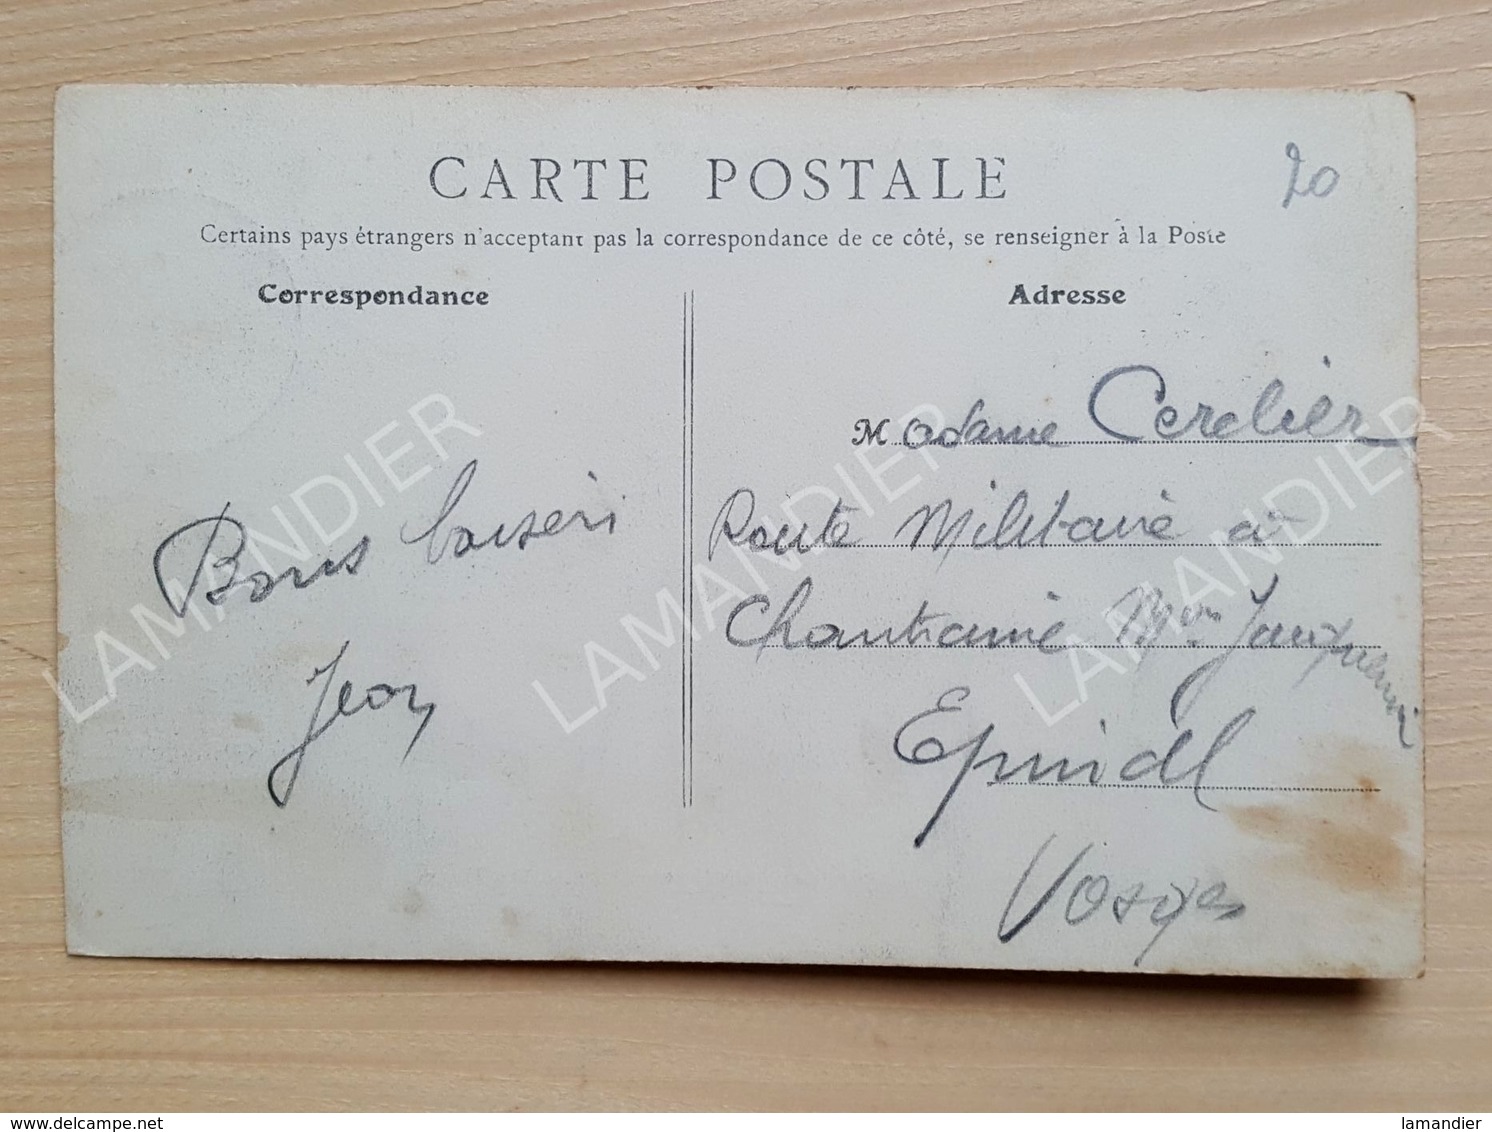 CARTE POSTALE
20
Certains pays étrangers n'acceptant pas la correspondance de ce côté, se renseigner à la Poste
Correspondance
Adresse
Bons baisers
Jean
Madame Cerclier
Route Militaire à
Chantraine Mon Jacquemin
Epinal
Vosges
LAMANDIER
LAMANDIER
LAMANDIER
delcampe.net
lamandier